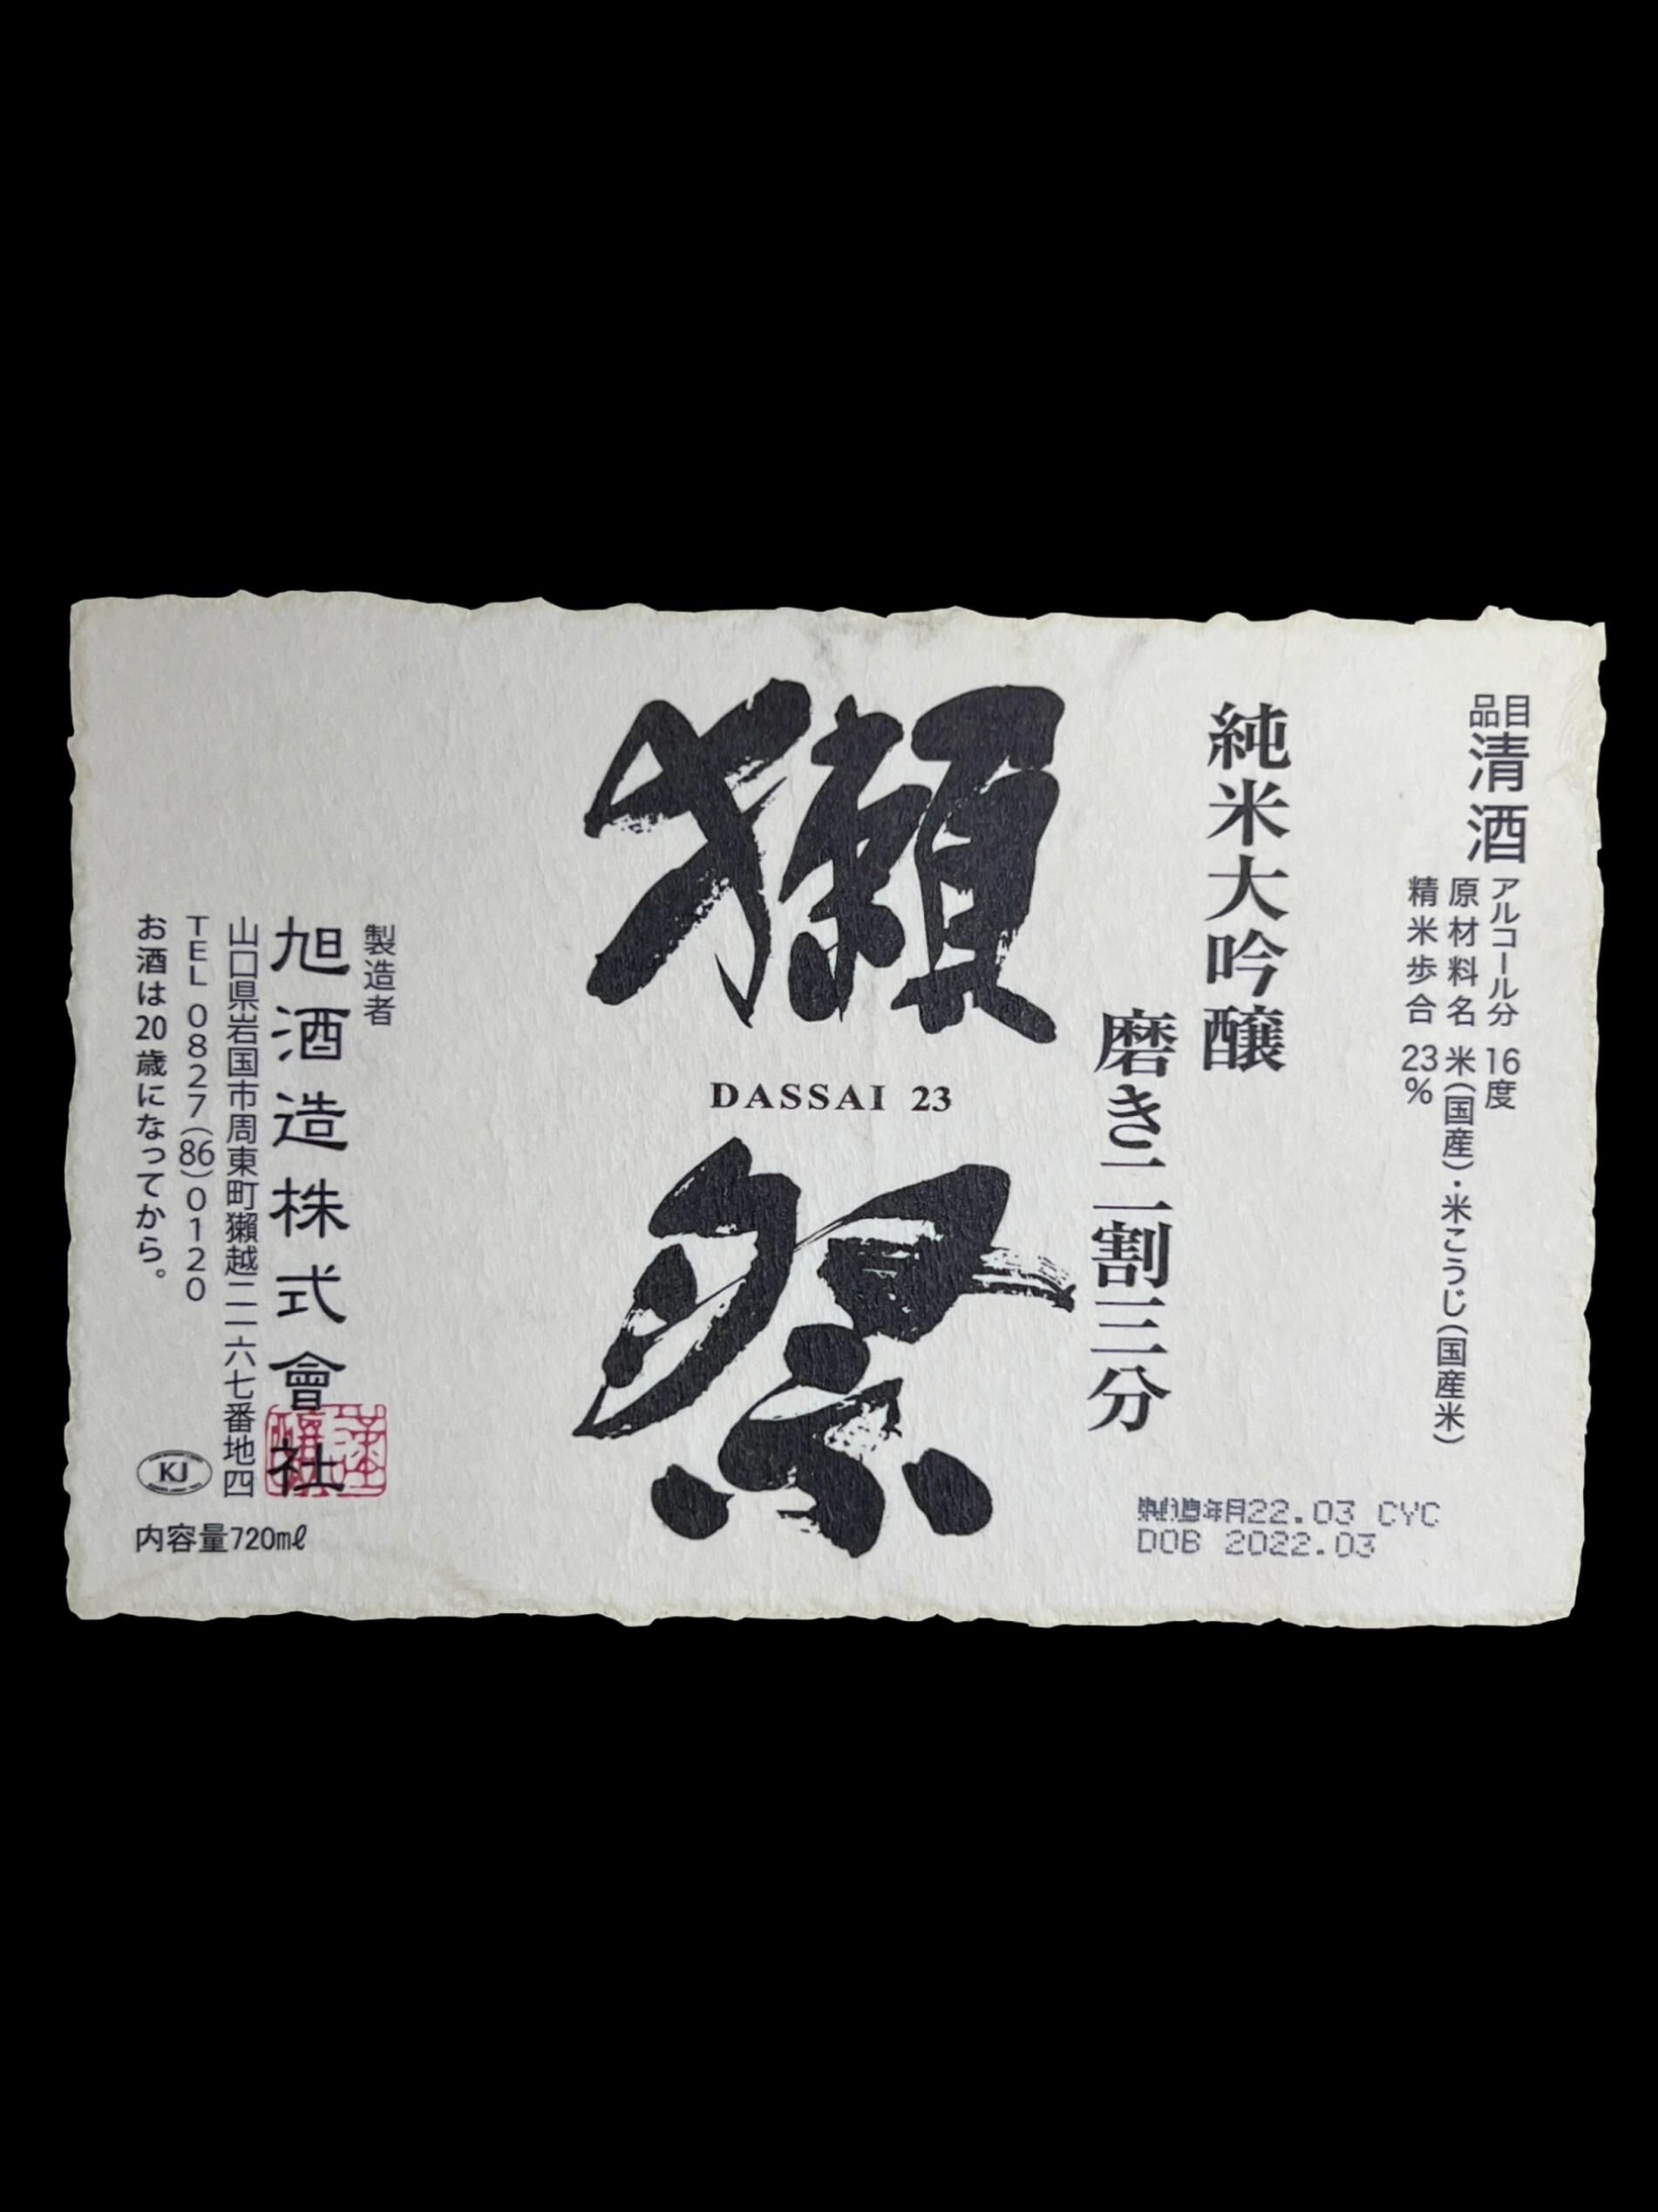 品目
清酒
アルコール分 16度
原材料名 米(国産)・米こうじ(国産米)
精米歩合 23%
純米大吟醸
磨き二割三分
獺祭
DASSAI 23
製造者
旭酒造株式會社
山口県岩国市周東町獺越二一六七番地四
TEL 0827(86)0120
お酒は20歳になってから。
KJ
内容量720mℓ
製造年月22.03 CYC
DOB 2022.03